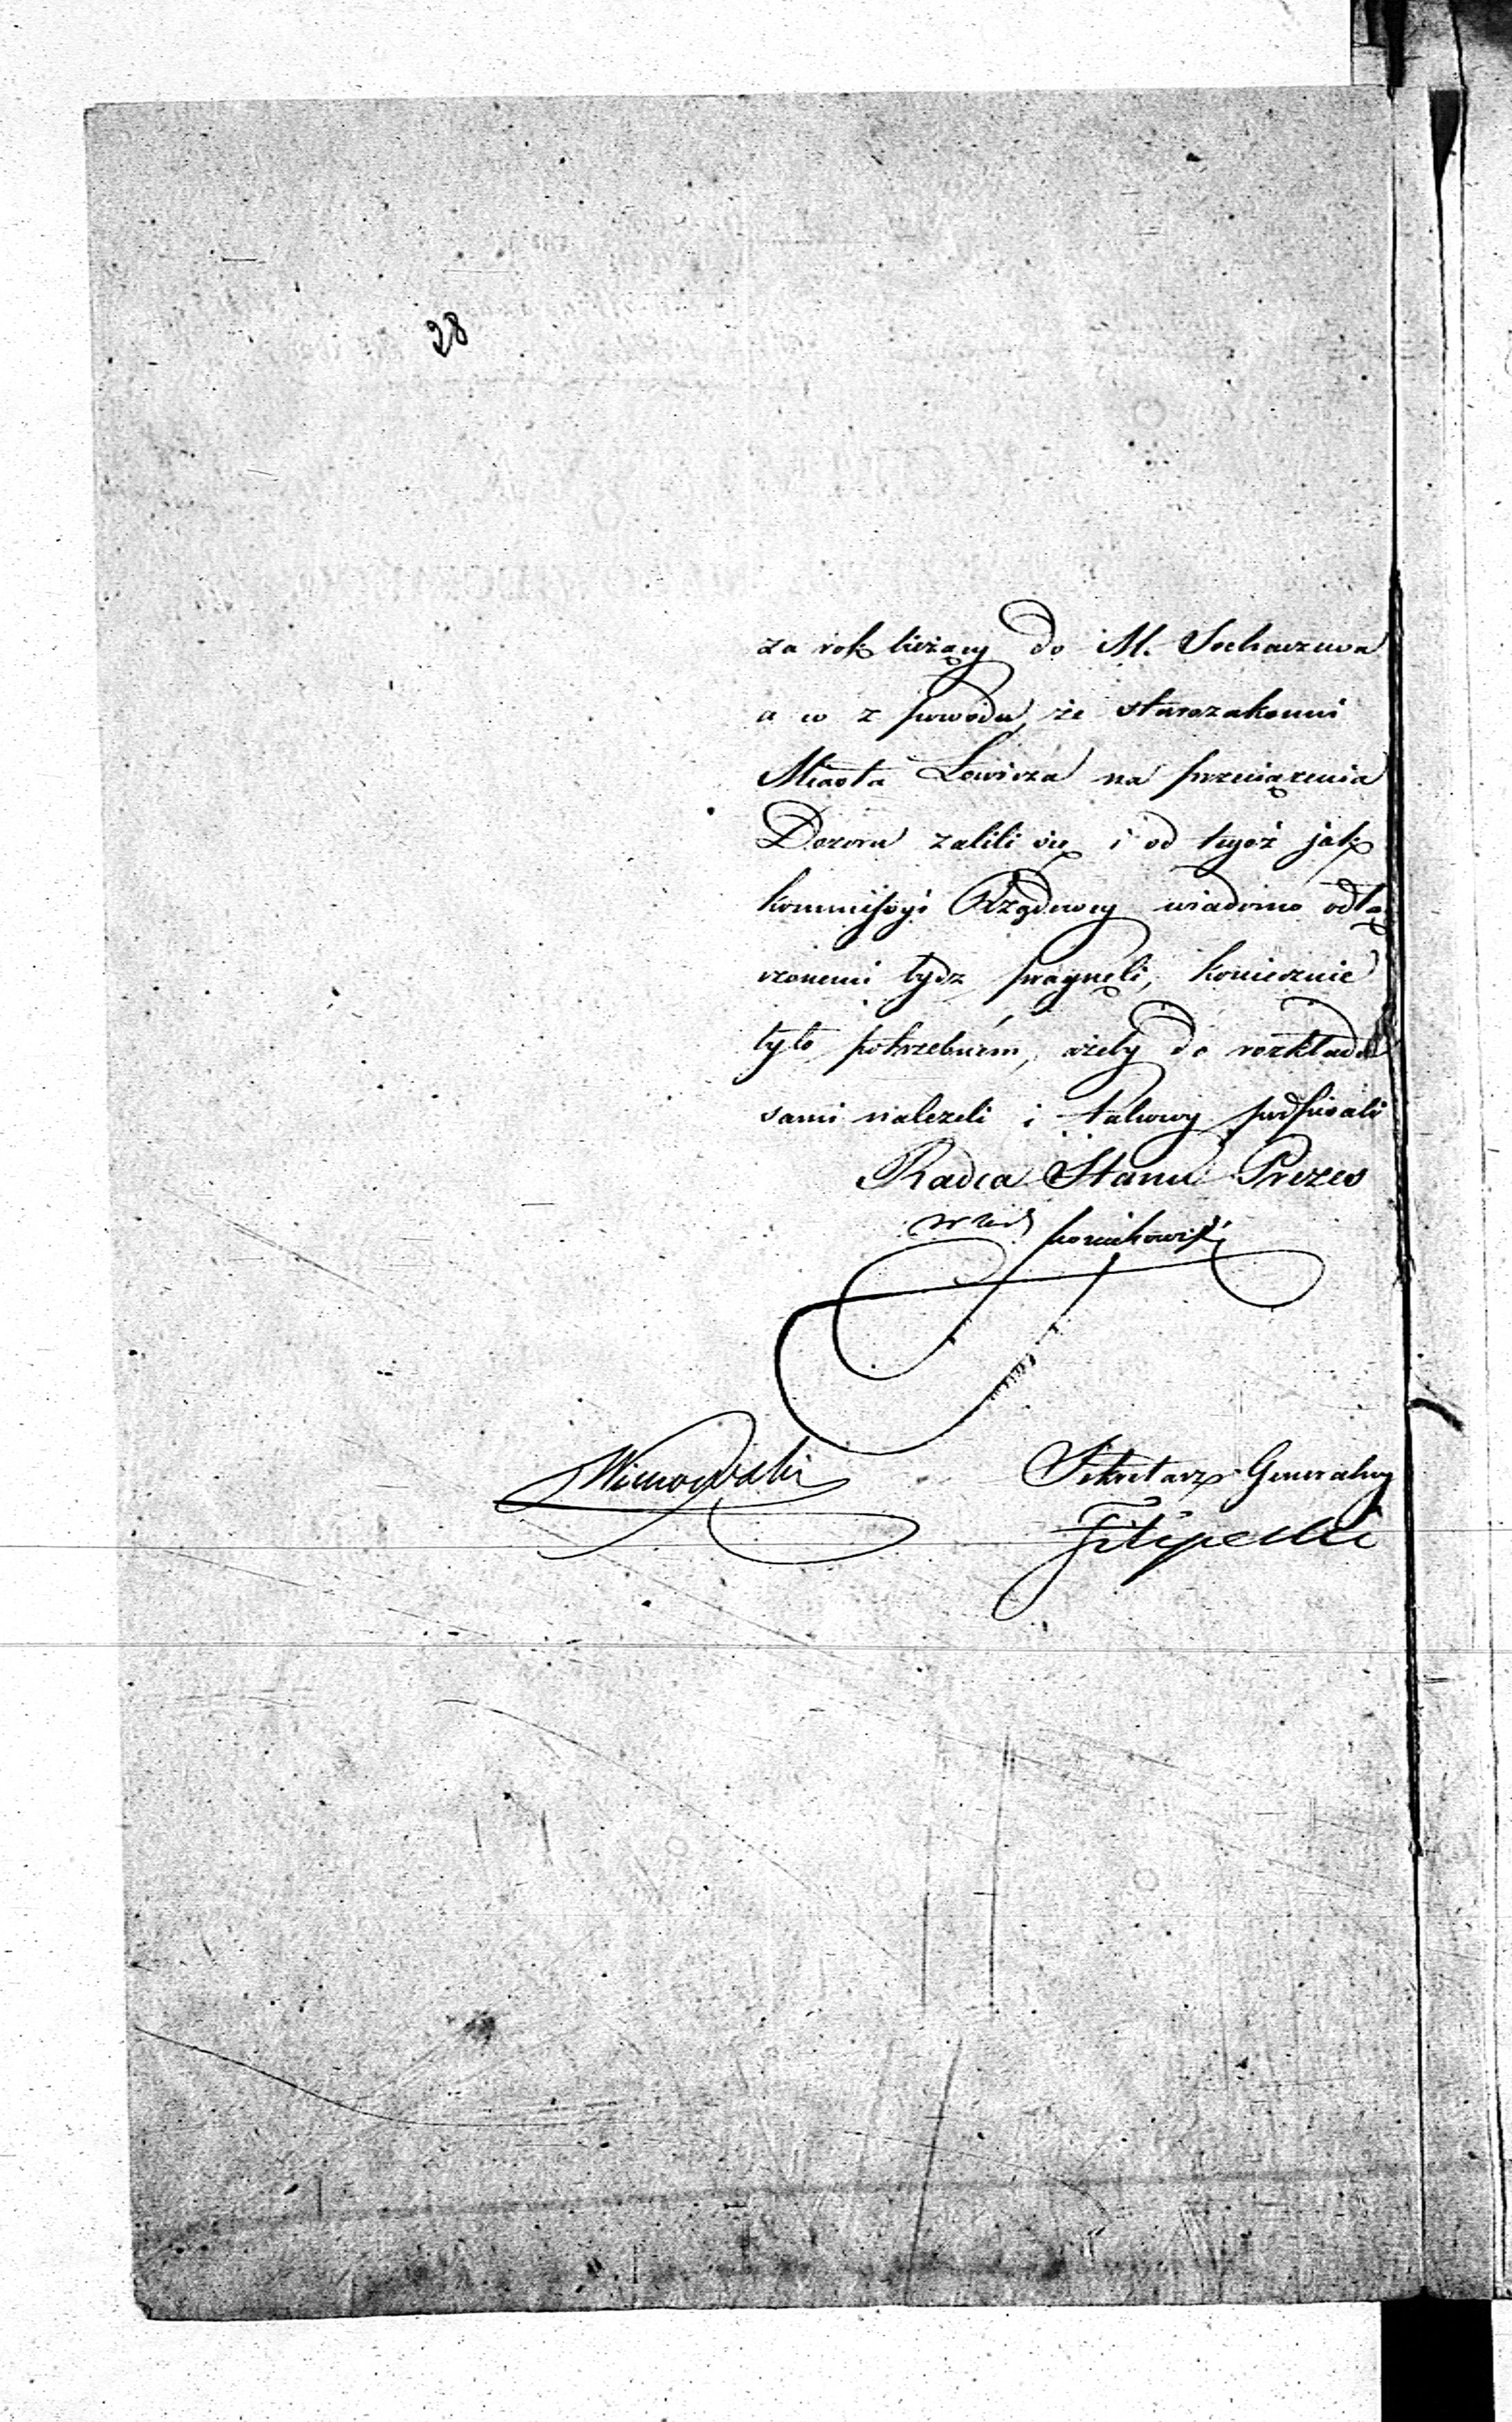 28
za rok bieżący do M. Sochaczewa
a to z powodu, że starozakonni
Miasta Łowicza na przeciążenia
Dozoru żalili się i od tegoż jak
Kommissyi Rządowey wiadomo odłą
czonemi bydz pragnęli, koniecznie
było potrzebném, ażeby do rozkładu
sami należeli i takowy podpisali
Radca Stanu Prezes
w zas
Sekretarz Generalny
Filipecki